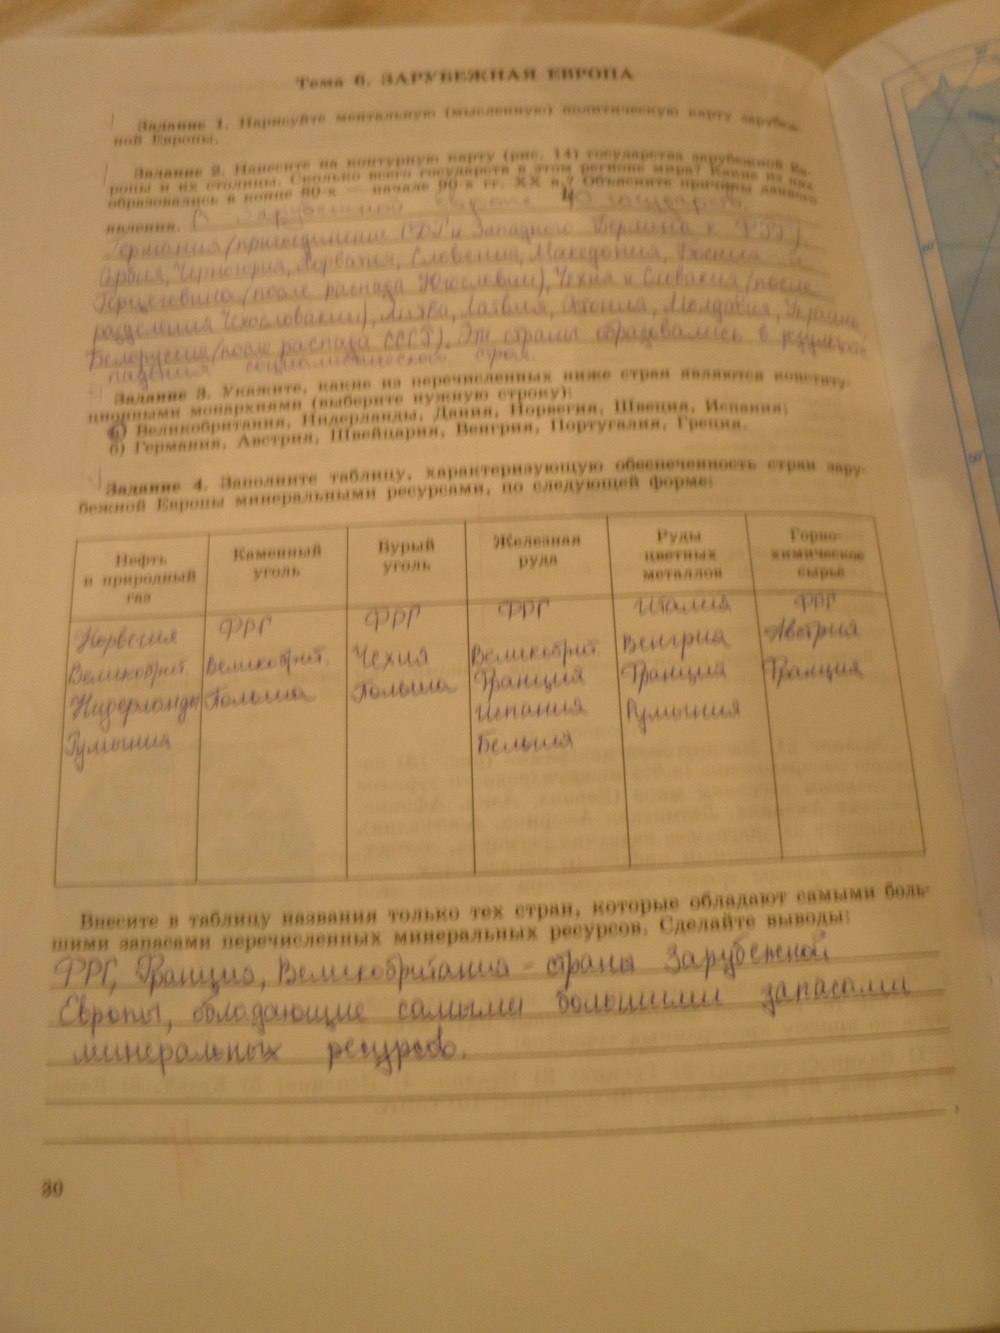 Тема 6. ЗАРУБЕЖНАЯ ЕВРОПА
Задание 1. Нарисуйте ментальную (мысленную) политическую карту зарубеж-
ной Европы.
Задание 2. Нанесите на контурную карту (рис. 14) государства зарубежной Ев-
ропы и их столицы. Сколько всего государств в этом регионе мира? Какие из них
образовались в конце 80-х — начале 90-х гг. XX в.? Объясните причины данного
явления. В Зарубежной Европе 40 государств.
Германия (присоединение ГДР и Западного Берлина к ФРГ),
Сербия, Черногория, Хорватия, Словения, Македония, Босния и
Герцеговина (после распада Югославии), Чехия и Словакия (после
разделения Чехословакии), Литва, Латвия, Эстония, Молдавия, Украина,
Белоруссия (после распада СССР). Эти страны образовались в результате
падения социалистического строя.
Задание 3. Укажите, какие из перечисленных ниже стран являются конститу-
ционными монархиями (выберите нужную строку):
а) Великобритания, Нидерланды, Дания, Норвегия, Швеция, Испания;
б) Германия, Австрия, Швейцария, Венгрия, Португалия, Греция.
Задание 4. Заполните таблицу, характеризующую обеспеченность стран зару-
бежной Европы минеральными ресурсами, по следующей форме:
Нефть и природный газ
Каменный уголь
Бурый уголь
Железная руда
Руды цветных металлов
Горно-химическое сырьё
Норвегия ФРГ ФРГ ФРГ Италия ФРГ
Великобрит. Великобрит. Чехия Великобрит. Венгрия Австрия
Нидерланды Польша Польша Франция Франция Франция
Румыния Испания Румыния
Бельгия
Внесите в таблицу названия только тех стран, которые обладают самыми боль-
шими запасами перечисленных минеральных ресурсов. Сделайте выводы:
ФРГ, Франция, Великобритания - страны Зарубежной
Европы, обладающие самыми большими запасами
минеральных ресурсов.
30